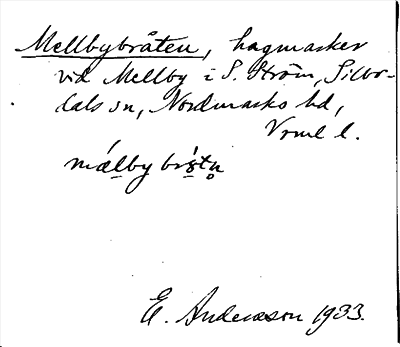 Mellbybråten, hagmarker
vid Mellby i S. Ström, Silbo-
dals sn, Nordmarks hd,
Vrml l.
mälby
E. Andersson 1933.